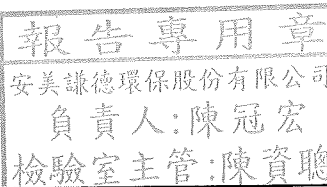 報告專用章
安美謙德環保股份有限公司
負責人:陳冠宏
檢驗室主管:陳資聰